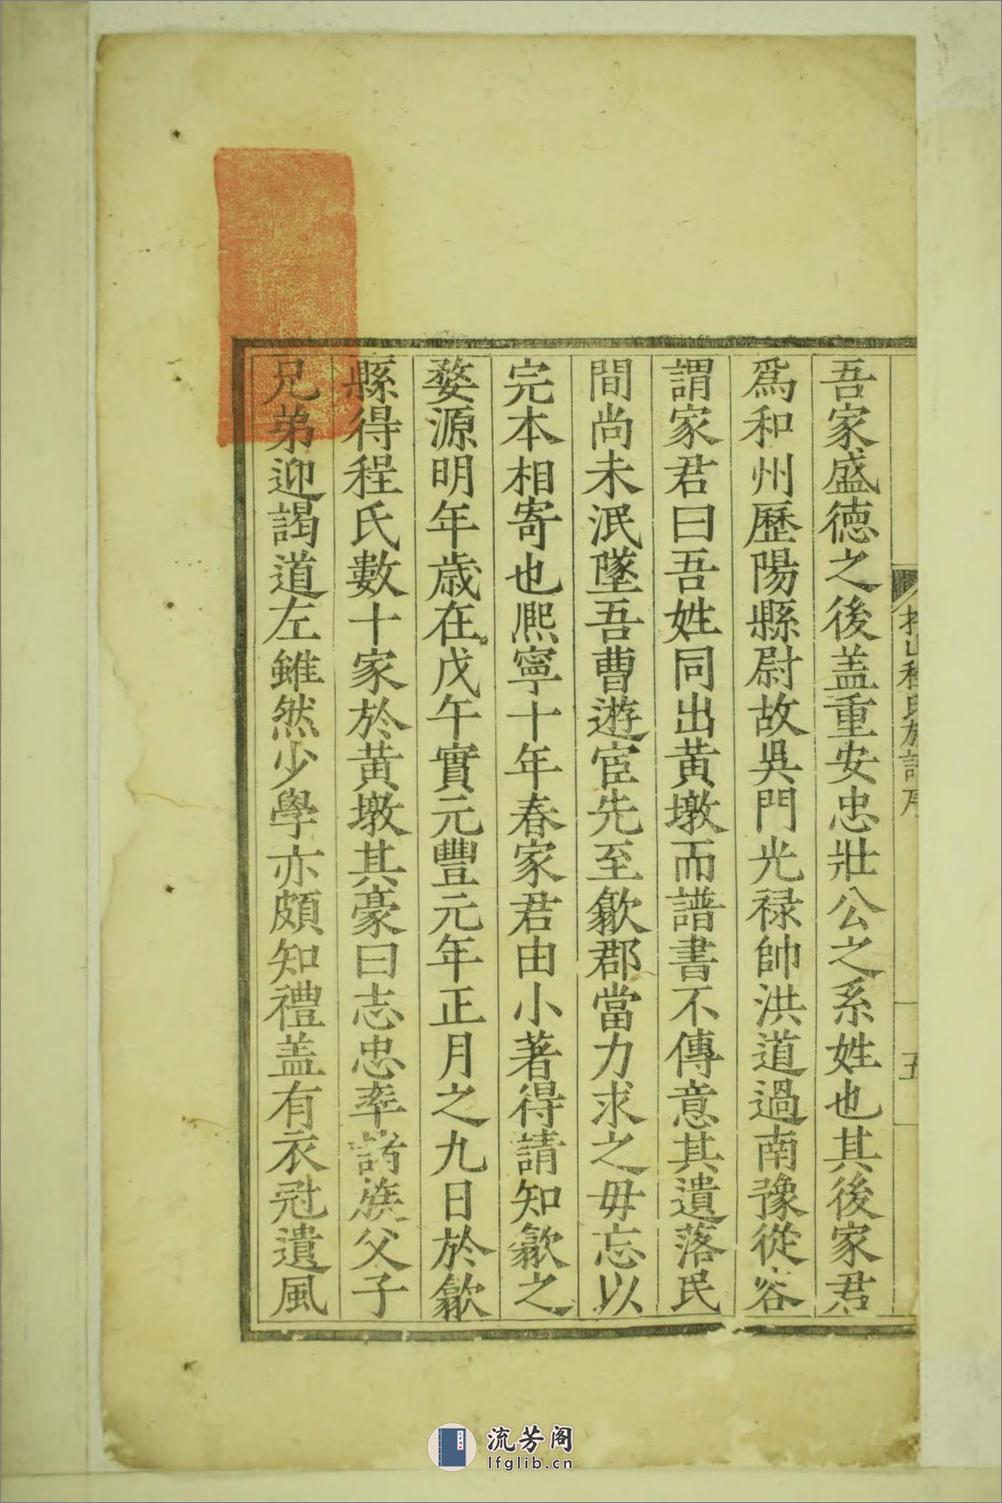 吾家盛德之後盖重安忠壯公之系姓也其後家君
爲和州歷陽縣尉故吳門光禄帥洪道過南豫從容
謂家君曰吾姓同出黄墩而譜書不傳意其遺落民
間尚未泯墜吾曹遊宦先至歙郡當力求之毋忘以
完本相寄也熈寧十年春家君由小著得請知歙之
婺源明年歳在戊午實元豐元年正月之九日於歙
縣得程氏數十家於黄墩其豪曰志忠率諸族父子
兄弟迎謁道左雖然少學亦頗知禮盖有衣冠遺風
山程氏族譜序
五
流芳阁
lfglib.cn